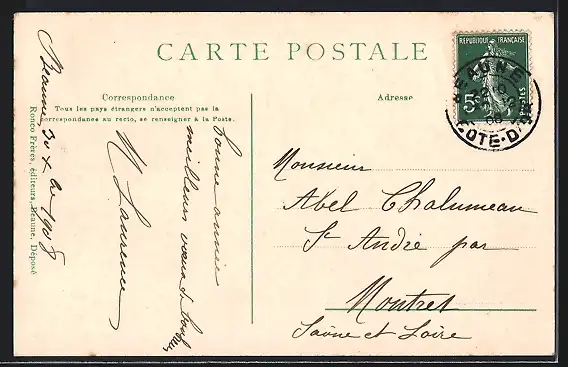 CARTE POSTALE
Correspondance
Tous les pays étrangers n'acceptent pas la
correspondance au recto, se renseigner à la Poste.
Adresse
REPUBLIQUE FRANÇAISE
5c
POSTES
BEAUNE
COTE-D'OR
Beaune 30 Xbre 1908
Ronco Frères, éditeurs, Beaune. Déposé
bonne année
meilleurs voeux de tous
M Laurence
Monsieur
Abel Chalumeau
St André par
Montret
Saône et Loire